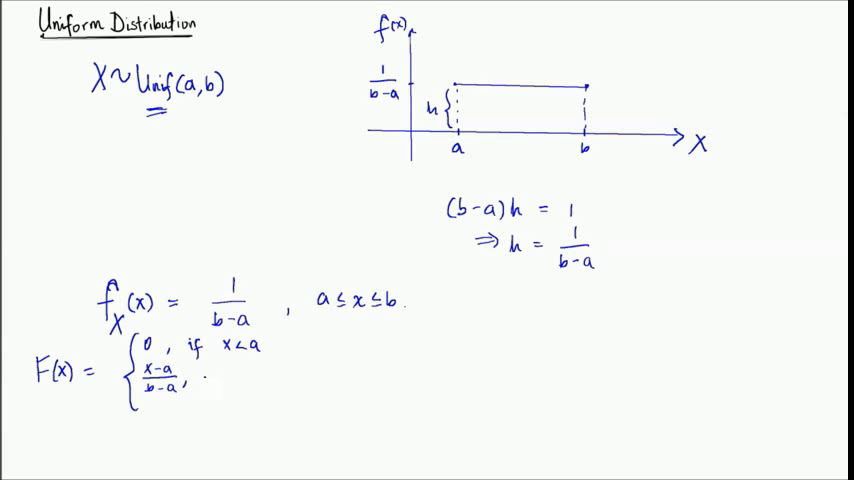 Uniform Distribution
X ~ Unif(a,b)
f(x)
1/(b-a)
h
a b X
(b-a)h = 1
⇒ h = 1/(b-a)
f_X(x) = 1/(b-a) , a ≤ x ≤ b.
F(x) = { 0 , if x < a
(x-a)/(b-a) , .